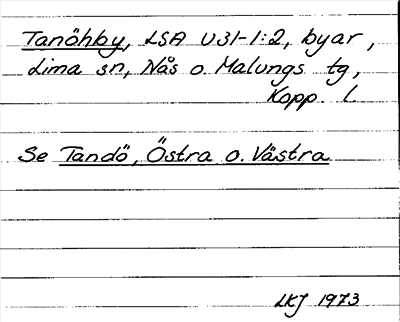 Tanöhby, LSA U31-1:2, byar,
Lima sn, Nås o. Malungs tg,
Kopp. l.
Se Tandö, Östra o. Västra
LKJ 1973